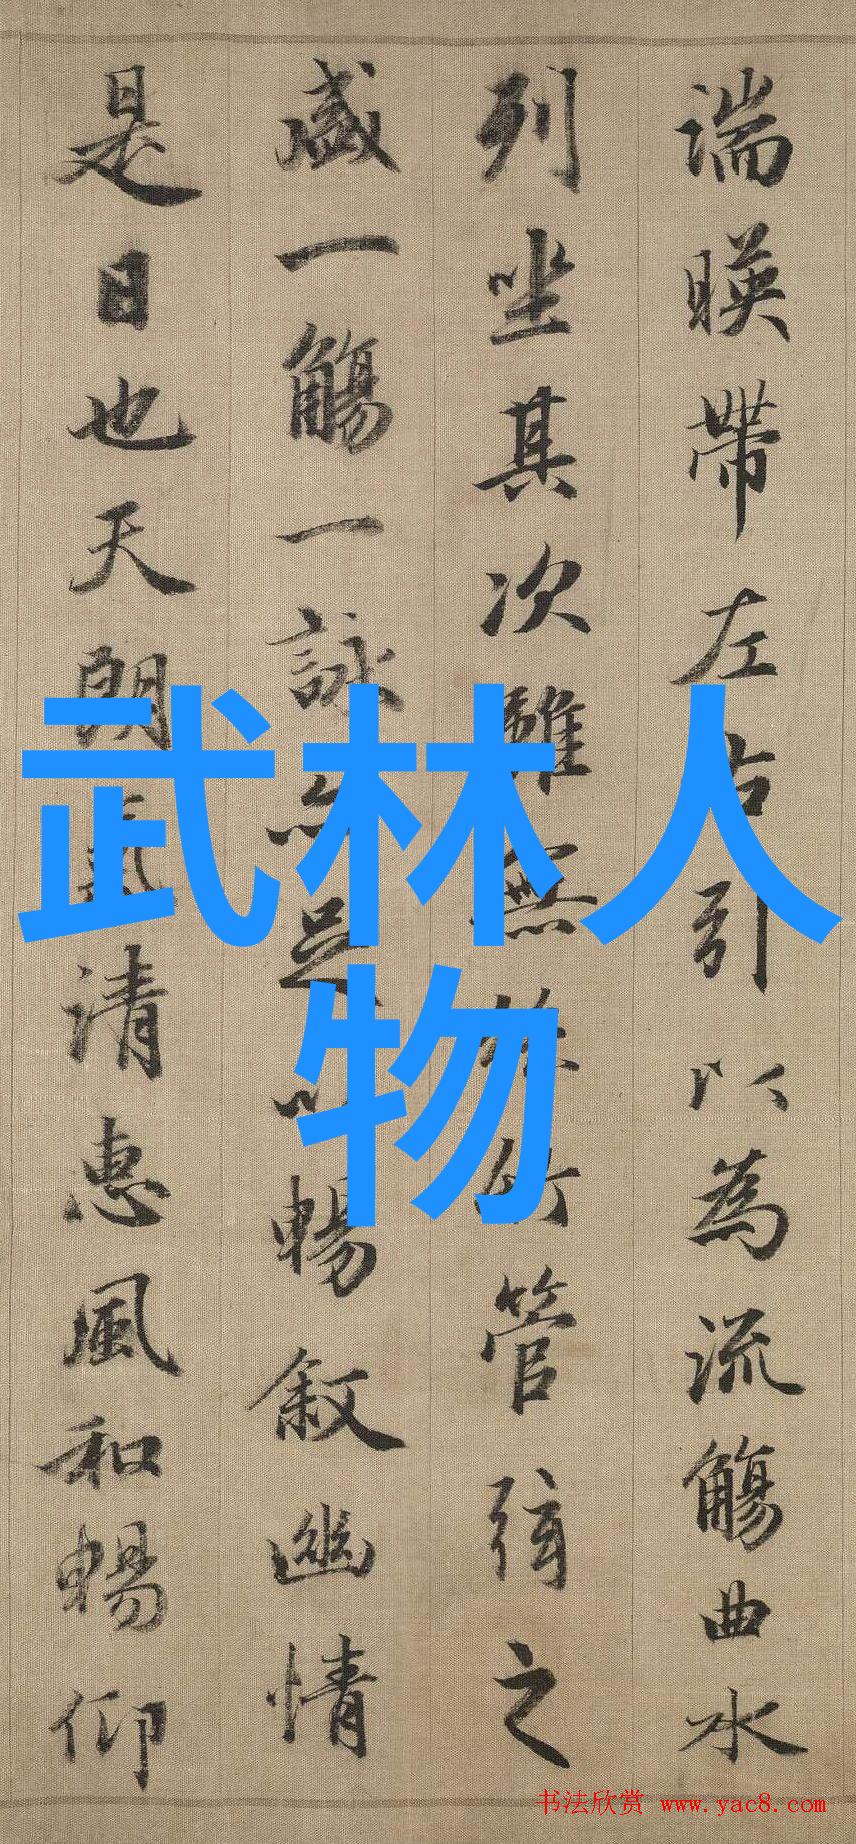 湍暎帶左右引以為流觴曲水
列坐其次雖無絲竹管弦之
盛一觴一詠亦足以暢叙幽情
是日也天朗氣清惠風和暢仰
武林人
物
书法欣赏 www.yac8.com